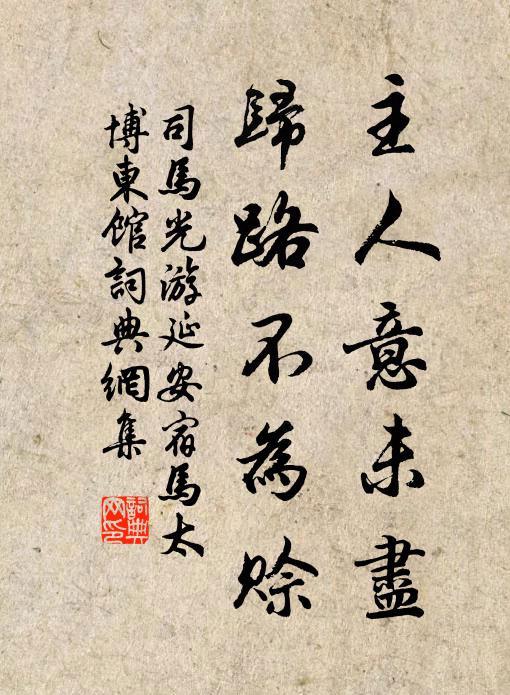 主人意未盡
歸路不為賒
司馬光游延安宿馬太
博東館詞典網集
詞典網印